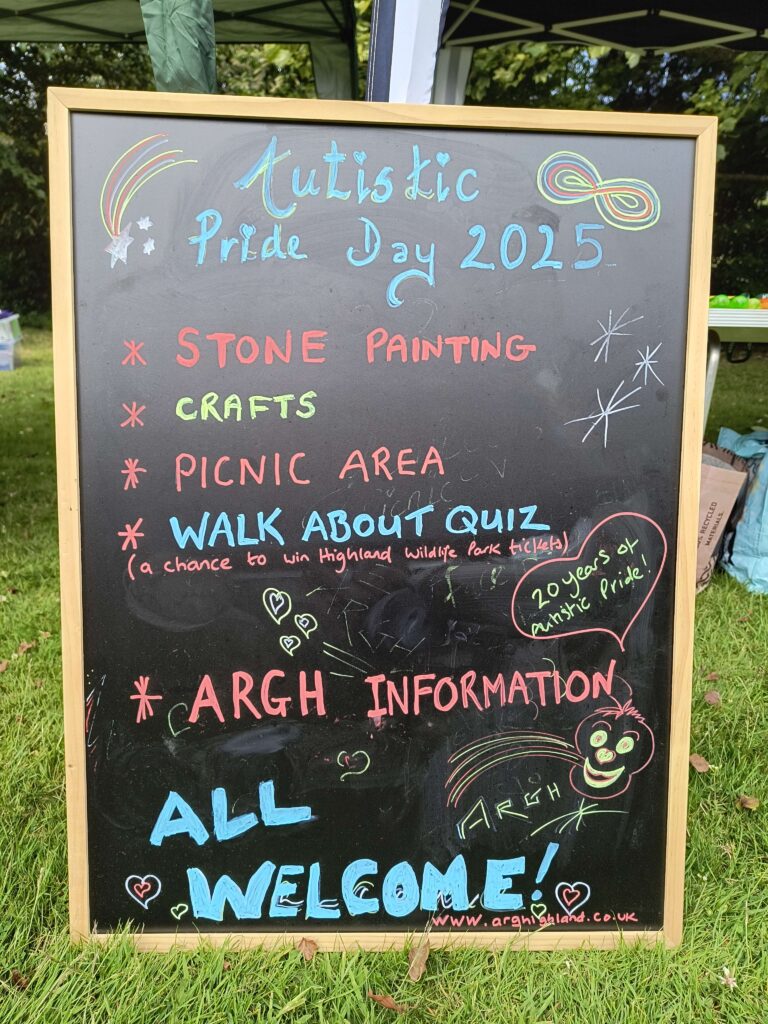 Autistic
Pride Day 2025
* STONE PAINTING
* CRAFTS
* PICNIC AREA
* WALK ABOUT QUIZ
(a chance to win Highland Wildlife Park tickets)
20 years of
Autistic Pride!
* ARGH INFORMATION
ARGH
ALL
WELCOME!
www.arghighland.co.uk
RECYCLED
MATERIALS.